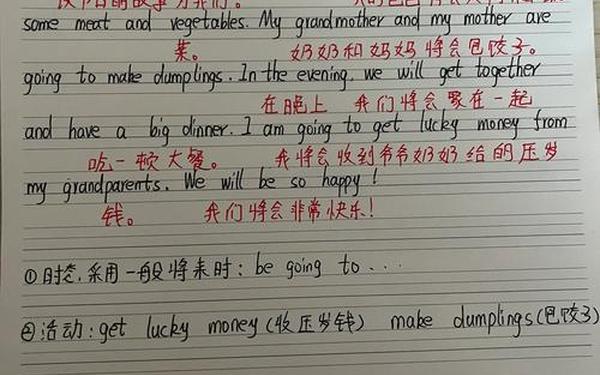 该节日的故事为我们。 我的爸爸将会买
some meat and vegetables. My grandmother and my mother are
菜。 奶奶和妈妈将会包饺子。
going to make dumplings. In the evening, we will get together
在晚上 我们将会聚在一起
and have a big dinner. I am going to get lucky money from
吃一顿大餐。 我将会收到爷爷奶奶给的压岁
my grandparents. We will be so happy!
钱。 我们将会非常快乐!
①时态.采用一般将来时: be going to ...
②活动: get lucky money (收压岁钱) make dumplings (包饺子)